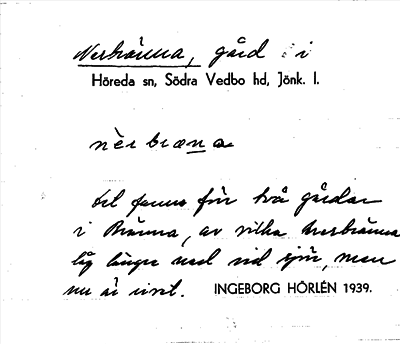 Nerbränna, gård i
Höreda sn, Södra Vedbo hd, Jönk. l.
nèr bræna
det fanns för två gårdar
i Bränna, av vilka Nerbränna
låg längre ned vid sjön, men
nu är
INGEBORG HÖRLÉN 1939.